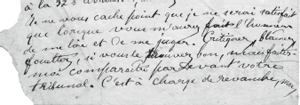 Je ne vous cache point que je ne serai satisfait
que lorsque vous m'aurez fait l'honneur
de me lire et de me juger. Critiquer, blâmer,
fouetter, si vous le trouvez bon, mais faites-
moi comparaître par devant votre
tribunal. C'est à charge de revanche,